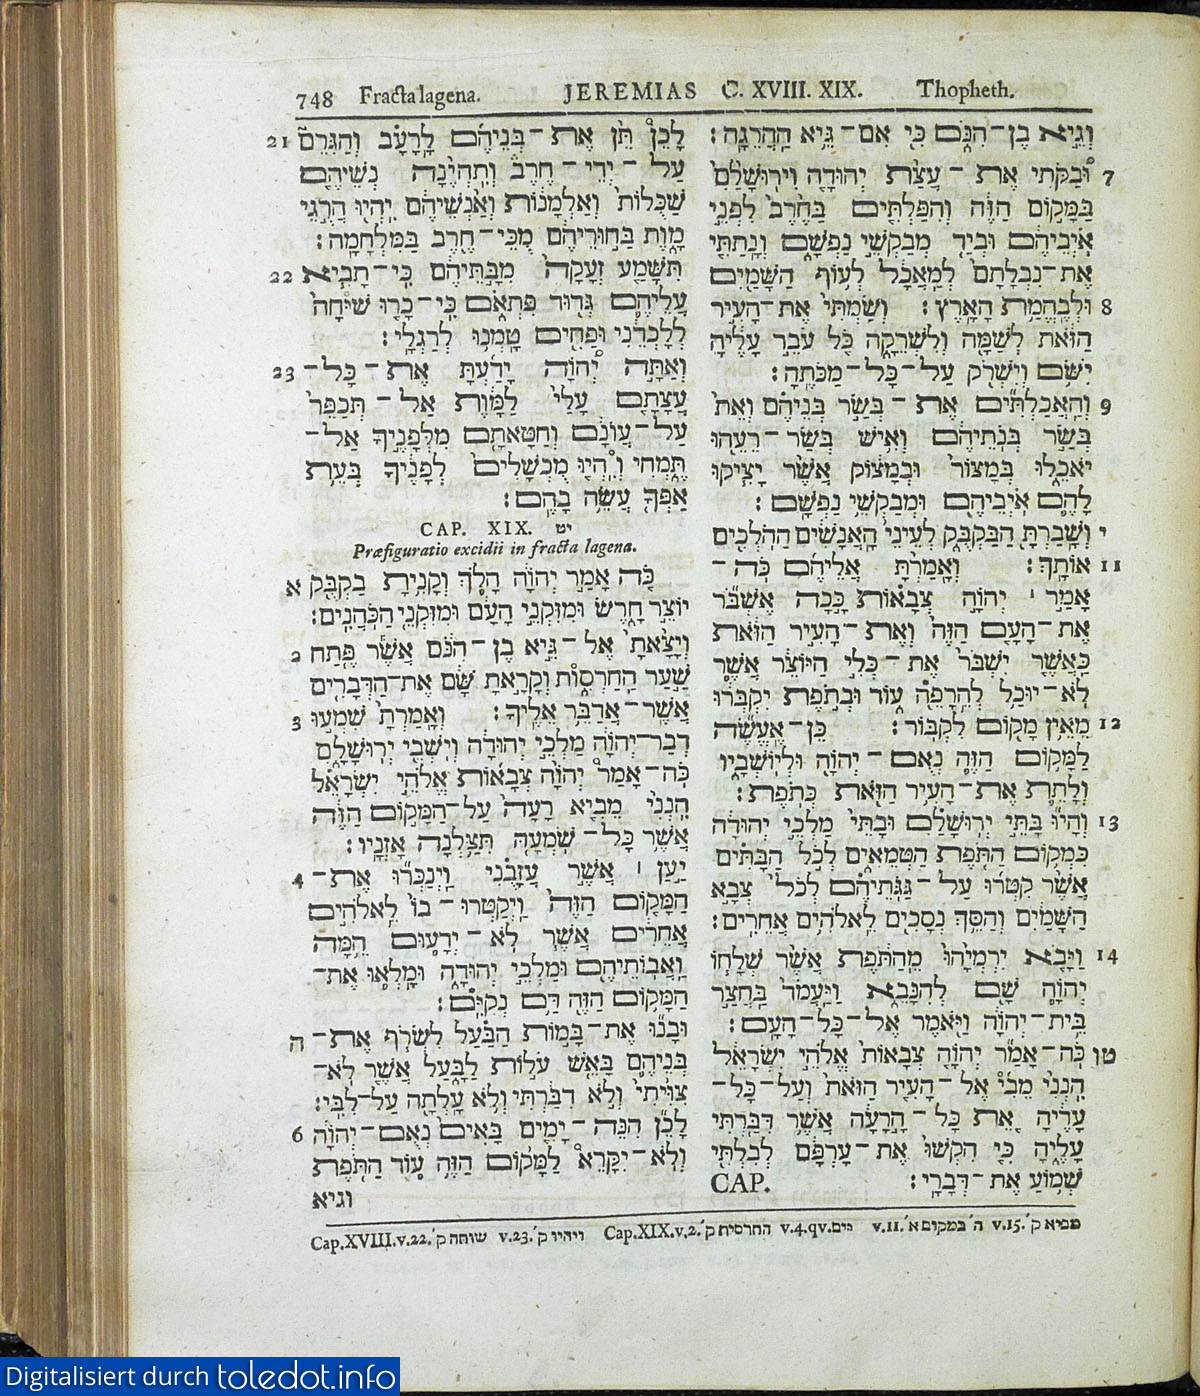 748 Fracta lagena. JEREMIAS C. XVIII. XIX. Thopheth.
21 לָכֵן תֵּן אֶת־בְּנֵיהֶם לָרָעָב וְהַגִּרֵם
עַל־יְדֵי־חֶרֶב וְתִהְיֶנָה נְשֵׁיהֶם
שַׁכֻּלוֹת וְאַלְמָנוֹת וְאַנְשֵׁיהֶם יִהְיוּ הֲרֻגֵי
מָוֶת בַּחוּרֵיהֶם מֻכֵּי־חֶרֶב בַּמִּלְחָמָה׃
22 תִּשָּׁמַע זְעָקָה מִבָּתֵּיהֶם כִּי־תָבִיא
עֲלֵיהֶם גְּדוּד פִּתְאֹם כִּי־כָרוּ שׁיּחָה
לְלָכְדֵנִי וּפַחִים טָמְנוּ לְרַגְלָי׃
23 וְאַתָּה יְהוָֹה יָדַעְתָּ אֶת־כָּל־
עֲצָתָם עָלַי לַמָּוֶת אַל־תְּכַפֵּר
עַל־עֲוֹנָם וְחַטָּאתָם מִלְּפָנֶיךָ אַל־
תֶּמְחִי וְהִיוּ מֻכְשָׁלִים לְפָנֶיךָ בְּעֵת
אַפְּךָ עֲשֵׂה בָהֶם׃
CAP. XIX. יט
Præfiguratio excidii in fracta lagena.
א כֹּה אָמַר יְהוָֹה הָלֹךְ וְקָנִיתָ בַקְבֻּק
יוֹצֵר חָרֶשׂ וּמִזִּקְנֵי הָעָם וּמִזִּקְנֵי הַכֹּהֲנִים׃
2 וְיָצָאתָ אֶל־גֵּיא בֶן־הִנֹּם אֲשֶׁר פֶּתַח
שַׁעַר הַחַרְסוּת וְקָרָאתָ שָּׁם אֶת־הַדְּבָרִים
3 אֲשֶׁר־אֲדַבֵּר אֵלֶיךָ׃ וְאָמַרְתָּ שִׁמְעוּ
דְבַר־יְהוָֹה מַלְכֵי יְהוּדָה וְיֹשְׁבֵי יְרוּשָׁלִָם
כֹּה־אָמַר יְהוָֹה צְבָאוֹת אֱלֹהֵי יִשְׂרָאֵל
הִנְנִי מֵבִיא רָעָה עַל־הַמָּקוֹם הַזֶּה
אֲשֶׁר כָּל־שֹׁמְעָהּ תִּצַּלְנָה אָזְנָיו׃
4 יַעַן ׀ אֲשֶׁר עֲזָבֻנִי וַיְנַכְּרוּ אֶת־
הַמָּקוֹם הַזֶּה וַיְקַטְּרוּ־בוֹ לֵאלֹהִים
אֲחֵרִים אֲשֶׁר לֹא־יְדָעוּם הֵמָּה
וַאֲבוֹתֵיהֶם וּמַלְכֵי יְהוּדָה וּמָלְאוּ אֶת־
הַמָּקוֹם הַזֶּה דַּם נְקִיִּם׃
ה וּבָנוּ אֶת־בָּמוֹת הַבַּעַל לִשְׂרֹף אֶת־
בְּנֵיהֶם בָּאֵשׁ עֹלוֹת לַבָּעַל אֲשֶׁר לֹא־
צִוִּיתִי וְלֹא דִבַּרְתִּי וְלֹא עָלְתָה עַל־לִבִּי׃
6 לָכֵן הִנֵּה־יָמִים בָּאִים נְאֻם־יְהוָֹה
וְלֹא־יִקָּרֵא לַמָּקוֹם הַזֶּה עוֹד הַתֹּפֶת
וגיא
וְגֵיא בֶן־הִנֹּם כִּי אִם־גֵּיא הַהֲרֵגָה׃
7 וּבַקֹּתִי אֶת־עֲצַת יְהוּדָה וִירוּשָׁלִַם
בַּמָּקוֹם הַזֶּה וְהִפַּלְתִּים בַּחֶרֶב לִפְנֵי
אֹיְבֵיהֶם וּבְיַד מְבַקְשֵׁי נַפְשָׁם וְנָתַתִּי
אֶת־נִבְלָתָם לְמַאֲכָל לְעוֹף הַשָּׁמַיִם
8 וּלְבֶהֱמַת הָאָרֶץ׃ וְשַׂמְתִּי אֶת־הָעִיר
הַזֹּאת לְשַׁמָּה וְלִשְׁרֵקָה כֹּל עֹבֵר עָלֶיהָ
יִשֹּׁם וְיִשְׁרֹק עַל־כָּל־מַכֹּתֶהָ׃
9 וְהַאֲכַלְתִּים אֶת־בְּשַׂר בְּנֵיהֶם וְאֵת
בְּשַׂר בְּנֹתֵיהֶם וְאִישׁ בְּשַׂר־רֵעֵהוּ
יֹאכֵלוּ בְּמָצוֹר וּבְמָצוֹק אֲשֶׁר יָצִיקוּ
לָהֶם אֹיְבֵיהֶם וּמְבַקְשֵׁי נַפְשָׁם׃
י וְשָׁבַרְתָּ הַבַּקְבֻּק לְעֵינֵי הָאֲנָשִׁים הַהֹלְכִים
11 אוֹתָךְ׃ וְאָמַרְתָּ אֲלֵיהֶם כֹּה־
אָמַר ׀ יְהוָֹה צְבָאוֹת כָּכָה אֶשְׁבֹּר
אֶת־הָעָם הַזֶּה וְאֶת־הָעִיר הַזֹּאת
כַּאֲשֶׁר יִשְׁבֹּר אֶת־כְּלִי הַיּוֹצֵר אֲשֶׁר
לֹא־יוּכַל לְהֵרָפֵה עוֹד וּבְתֹפֶת יִקְבְּרוּ
12 מֵאֵין מָקוֹם לִקְבּוֹר׃ כֵּן־אֶעֱשֶׂה
לַמָּקוֹם הַזֶּה נְאֻם־יְהוָֹה וּלְיוֹשְׁבָיו
וְלָתֵת אֶת־הָעִיר הַזֹּאת כְּתֹפֶת׃
13 וְהָיוּ בָּתֵּי יְרוּשָׁלִַם וּבָתֵּי מַלְכֵי יְהוּדָה
כִּמְקוֹם הַתֹּפֶת הַטְּמֵאִים לְכֹל הַבָּתִּים
אֲשֶׁר קִטְּרוּ עַל־גַּגֹּתֵיהֶם לְכֹל צְבָא
הַשָּׁמַיִם וְהַסֵּךְ נְסָכִים לֵאלֹהִים אֲחֵרִים׃
14 וַיָּבֹא יִרְמְיָהוּ מֵהַתֹּפֶת אֲשֶׁר שְׁלָחוֹ
יְהוָֹה שָׁם לְהִנָּבֵא וַיַּעֲמֹד בַּחֲצַר
בֵּית־יְהוָֹה וַיֹּאמֶר אֶל־כָּל־הָעָם׃
טו כֹּה־אָמַר יְהוָֹה צְבָאוֹת אֱלֹהֵי יִשְׂרָאֵל
הִנְנִי מֵבִי אֶל־הָעִיר הַזֹּאת וְעַל־כָּל־
עָרֶיהָ אֵת כָּל־הָרָעָה אֲשֶׁר דִּבַּרְתִּי
עָלֶיהָ כִּי הִקְשׁוּ אֶת־עָרְפָּם לְבִלְתִּי
שְׁמוֹעַ אֶת־דְּבָרָי׃
CAP.
Cap.XVIII.v.22. שוחה ק׳ v.23. ויהיו ק׳ Cap.XIX.v.2. החרסית ק׳ v.4.qv. יים v.11. ה׳ במקום א׳ v.15. מביא ק׳
Digitalisiert durch toledot.info